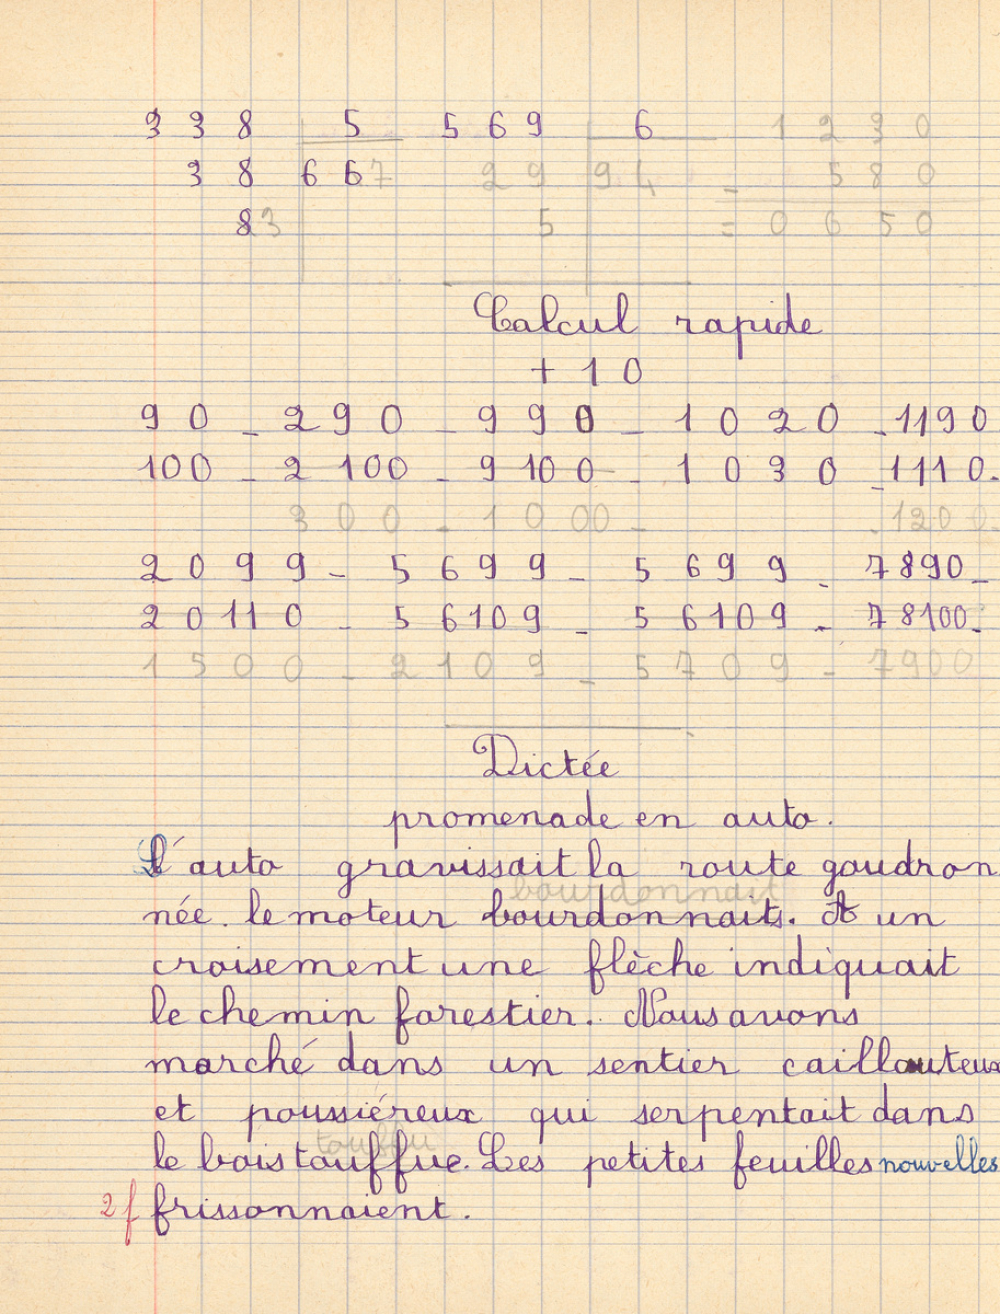 3 3 8 5 5 6 9 6 1 2 3 0
3 8 6 6 7 2 9 9 4 - 5 8 0
8 3 5 = 0 6 5 0
Calcul rapide
+ 1 0
9 0 - 2 9 0 - 9 9 0 - 1 0 2 0 - 1190
100 - 2 100 - 9 100 - 1 0 3 0 - 1110.
3 0 0 - 1 0 00 - . 120 0.
2 0 9 9 - 5 6 9 9 - 5 6 9 9 - 7890 -
2 0 11 0 - 5 6 10 9 - 5 6 10 9 - 7 8100.
1 5 0 0 - 2 1 0 9 - 5 7 0 9 - 7900
Dictée
promenade en auto.
L'auto gravissait la route goudron
bourdonnait
née. le moteur bourdonnaits. A un
croisement une flèche indiquait
le chemin forestier. Nous avons
marché dans un sentier caillouteux
et poussiéreux qui serpentait dans
touffu
le bois touffue. Les petites feuilles nouvelles
2f frissonnaient.